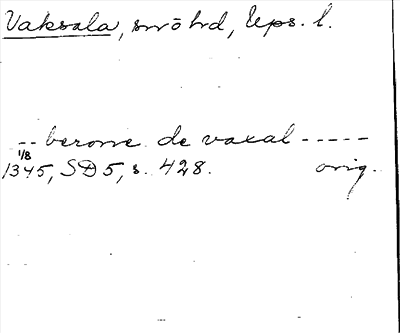 Vaksala, snöhd, Ups. l.
-- berone de vaxal -----
1/8
1345, SD 5, s. 428. orig.